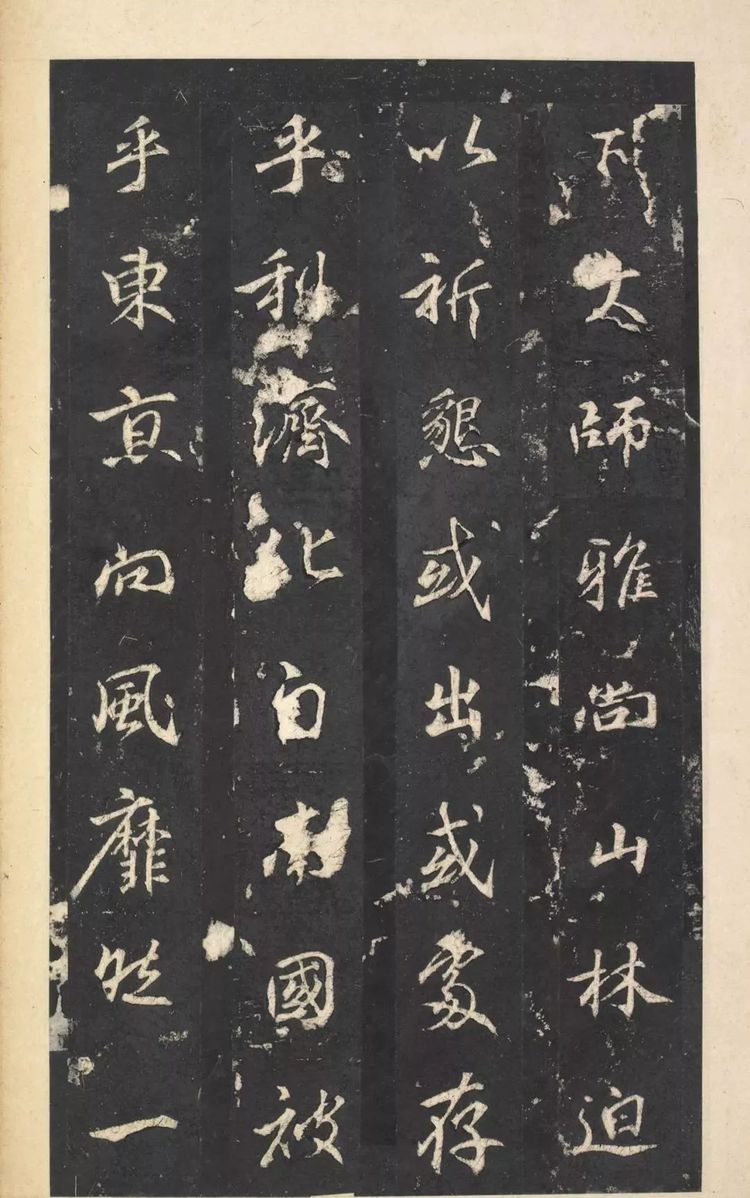 大師雅尚山林迫
以祈懇或出或處存
乎利濟化自南國被
乎東亰向風靡然一